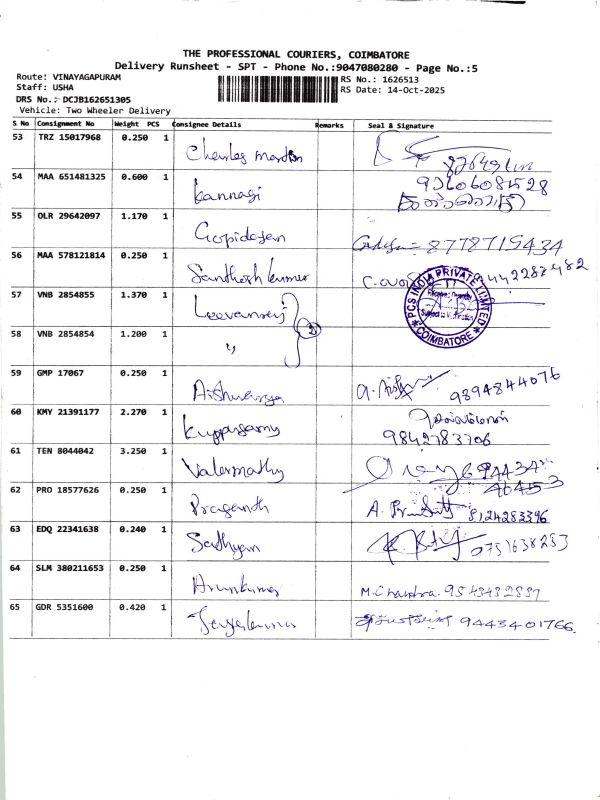 THE PROFESSIONAL COURIERS, COIMBATORE
Delivery Runsheet - SPT - Phone No.:9047080280 - Page No.:5
Route: VINAYAGAPURAM
RS No.: 1626513
Staff: USHA
RS Date: 14-Oct-2025
DRS No.: DCJB162651305
Vehicle: Two Wheeler Delivery
S No Consignment No Weight PCS Consignee Details Remarks Seal & Signature
53 TRZ 15017968 0.250 1 Charles
54 MAA 651481325 0.600 1 Kannagi 9360608528
55 OLR 29642097 1.170 1 Gopi 8778715434
56 MAA 578121814 0.250 1 Santhosh kumar 9442287482
57 VNB 2854855 1.370 1
PCS INDIA PRIVATE LIMITED
Subject to Verification
* COIMBATORE *
58 VNB 2854854 1.200 1 〃
59 GMP 17067 0.250 1 Aishwarya 9894844076
60 KMY 21391177 2.270 1 Kuppusamy
9842783706
61 TEN 8044042 3.250 1 Valarmathy 94434
46453
62 PRO 18577626 0.250 1 Prasanth A. Prasanth 8124283396
63 EDQ 22341638 0.240 1 Sathyan 9751638283
64 SLM 380211653 0.250 1 Arunkumar M. Chandra. 9543432837
65 GDR 5351600 0.420 1 9443401766